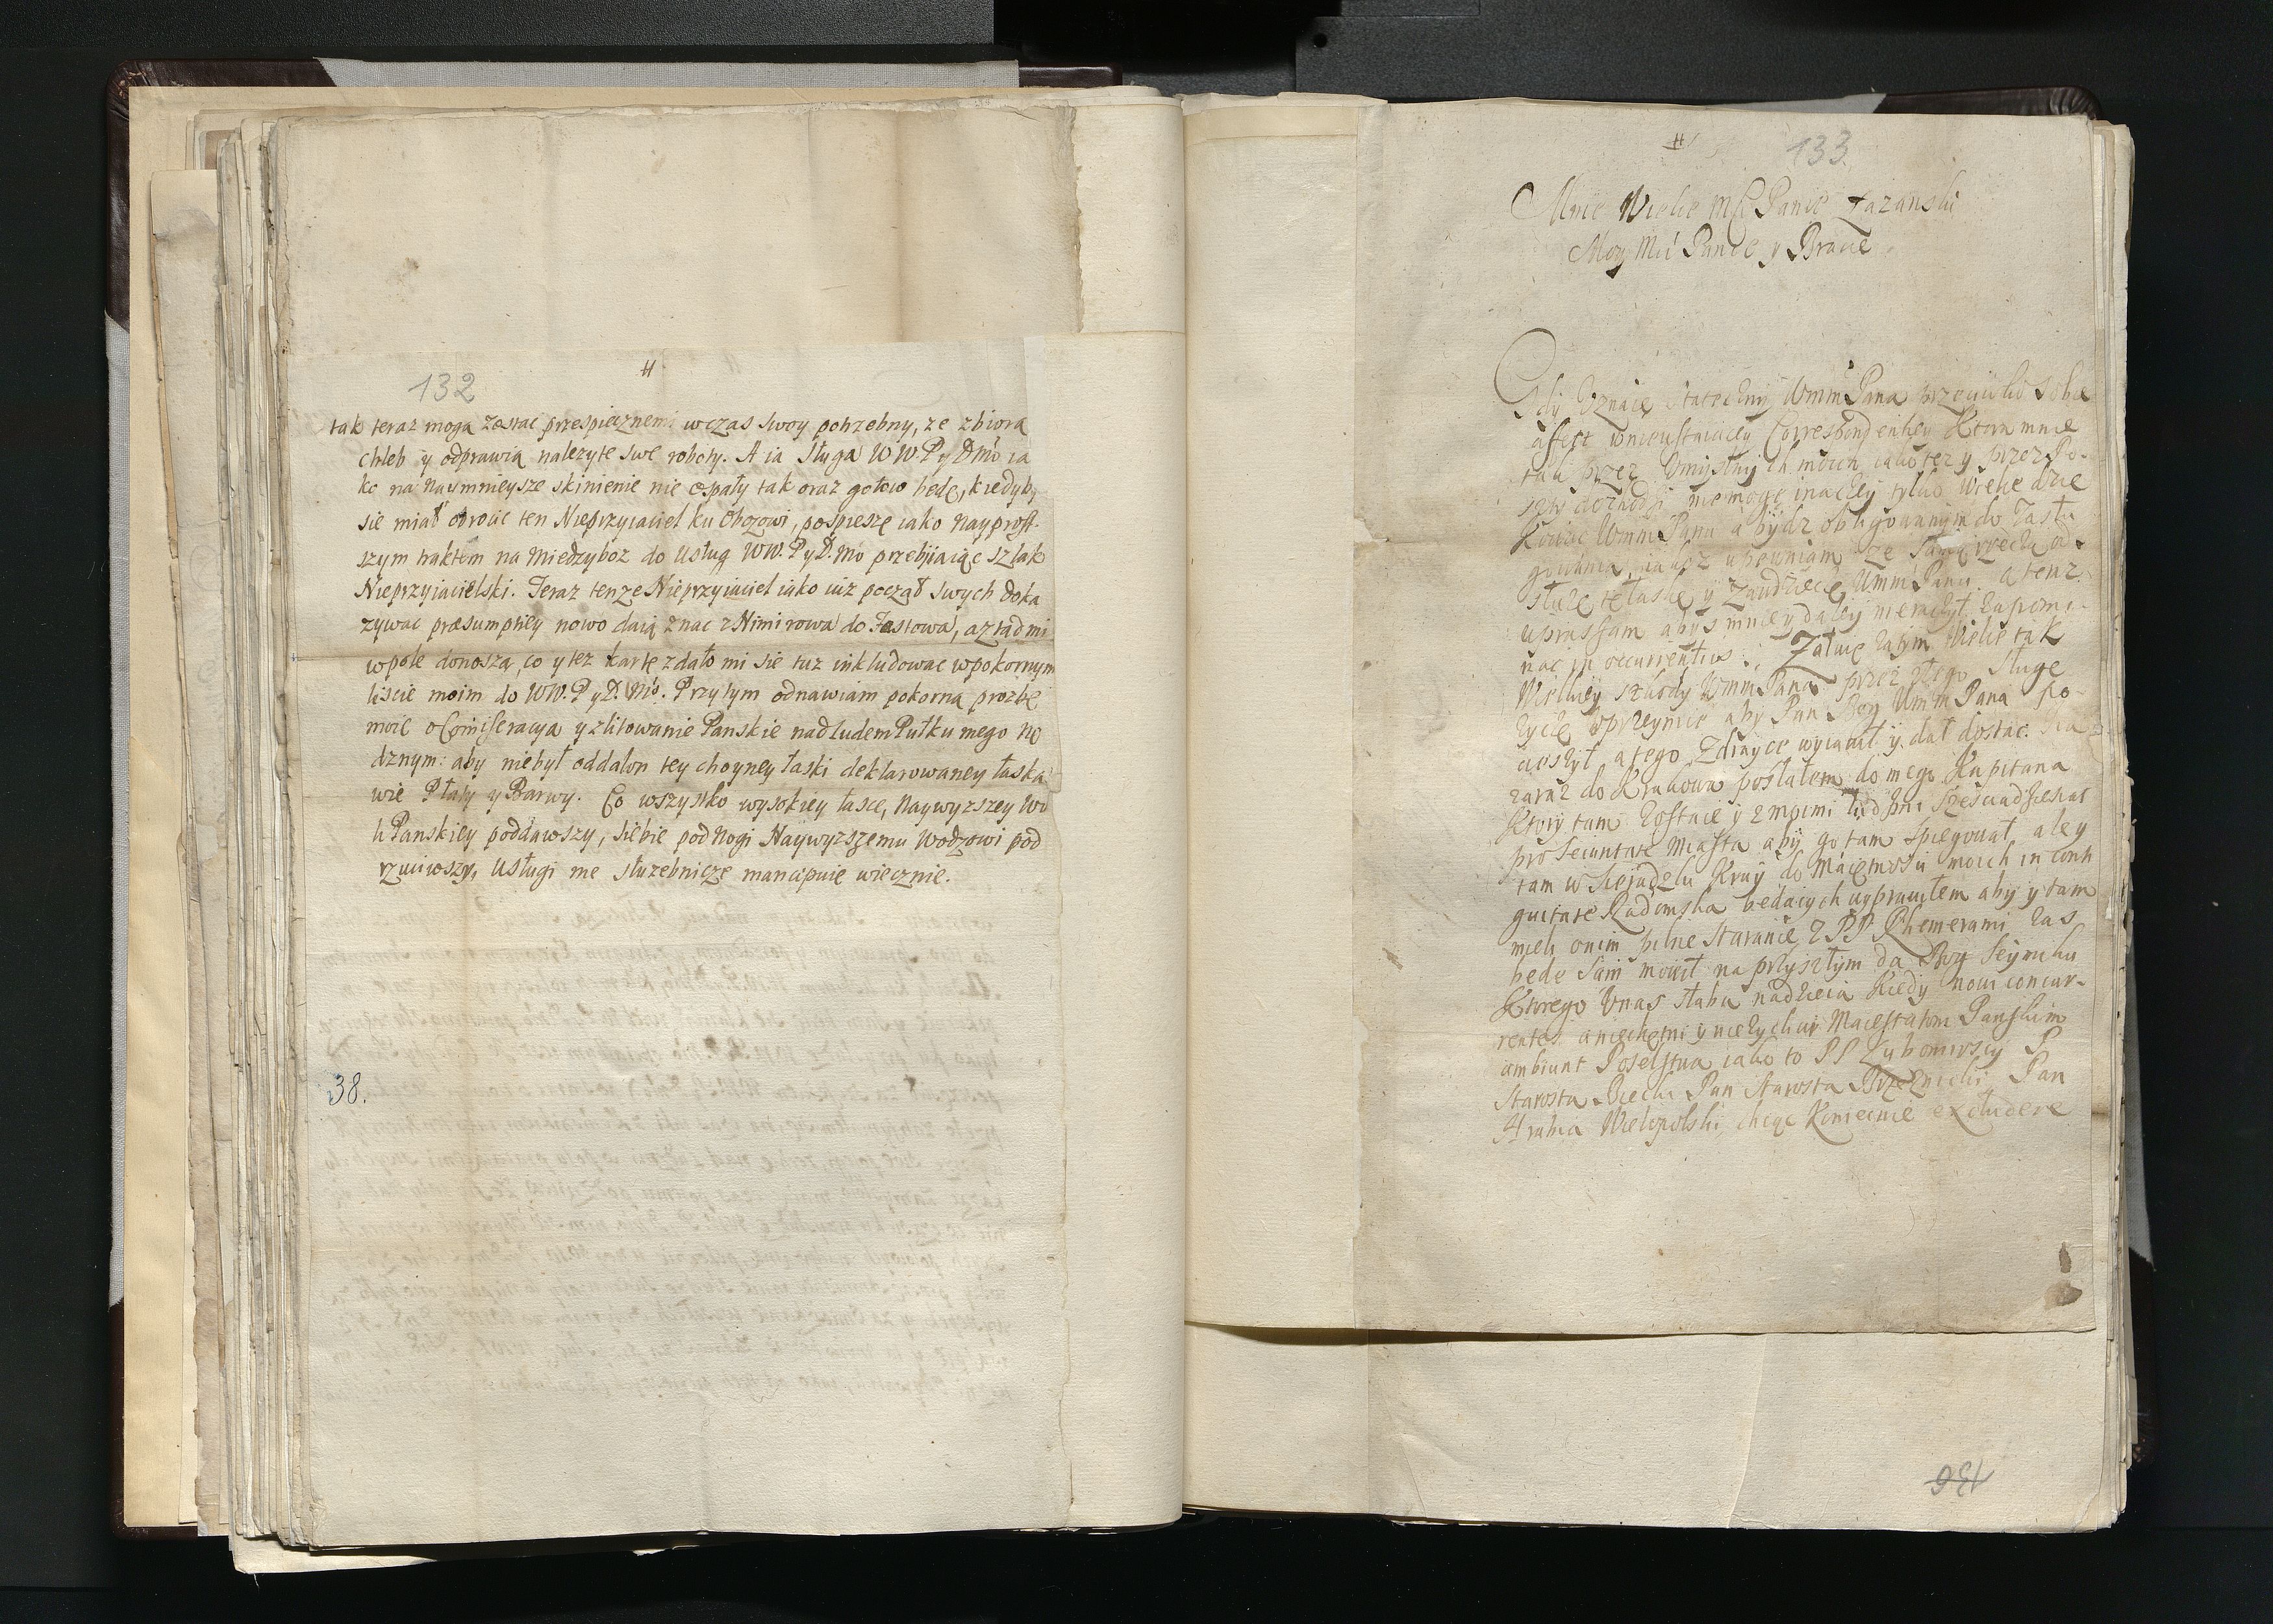 132
#
tak teraz moga zostac przespiecznemi wczas swoy potrzebny, ze zbiora
chleb y odprawią nalezyte swe roboty. A ia sługa WW. P y Dmo ia
ko na naymnieysze skinienie nie ospały tak oraz gotow będę, kiedyby
sie miał obrocic ten Nieprzyiaciel ku Obozowi, pospieszę iako nayprost-
szym traktem na Miedzyboz do Usług WW. P y D. mo przebiiaiąc szlak
Nieprzyiacielski. Teraz tenze Nieprzyiaciel iako iuz począł swych doka
zywac præsumptiey nowo daią znac z Nimirowa do Fastowa, aztad mi
wpole donoszą, co y tez kartę zdało mi sie tuz inkludowac wpokornym
liscie moim do WW. P y D. Mo. Przytym odnawiam pokorną prozbę
moie o Comiseracya y zlitowanie Panskie nad ludem Pułku mego nę
dznym: aby niebył oddalon tey choyney łaski deklarowaney łaska
wie Płaty y Barwy. Co wszystko wysokiey łasce, Naywyzszey wo
li Panskiey poddawszy, siebie pod nogi Naywyzszemu Wodzowi pod
rzuciwszy, Usługi me słuzebnicze mancipuię wiecznie.
38.
#
133
Mnie Wielce Mści Panie Łazanski
Moy Mci Panie y Bracie
Gdy Uznaię stateczny WmmPana przeciwko sobie
affect wnieustaiącey Correspondentiey Ktora mnie
tak przez Umyslnych moich iako tez y przez Po-
sty dochodzi niemogę inaczey tylko Wielce dzię
kowac WmmPanu a bydz obligowanym do zasłu
giwania, iakosz upewniam ze samą rzeczą o
słuzę tę łaskę y zawdzięczę WmmPanu. a teraz
upraszam abys mniey daley nieraczył zapomi-
nac in occurrentiis. Załuię zatym Wielce tak
Wielkiey szkody WmmPana przez złego sługę
zyczę uprzeymie aby Pan Bog WmmPana po-
cieszył a tego Zdraycę wydał y dał dostac. Ia
zaraz do Krakowa posłałem do mego Kapitana
Ktory tam zostaie y z moimi ludzmi
pro securitate Miasta aby go tam spiegował, ale y
tam w Kray do moich in conti
guitate Radomska będących wyprawiłem aby y tam
mieli onim pilne staranie, z PP. Rhemerami zas
będę sam mowił na przyszłym da Bog Seymiku
Ktorego Unas słaba nadzieia Kiedy novi concur-
rentes a niechętni y niezyczliwi Maiestatom Panskim
ambiunt Poselstwa iako to PP Lubomirscy P.
Starosta Biecki Pan Starosta Pan
Hrabia Wielopolski, chcąc Koniecznie excludere
136